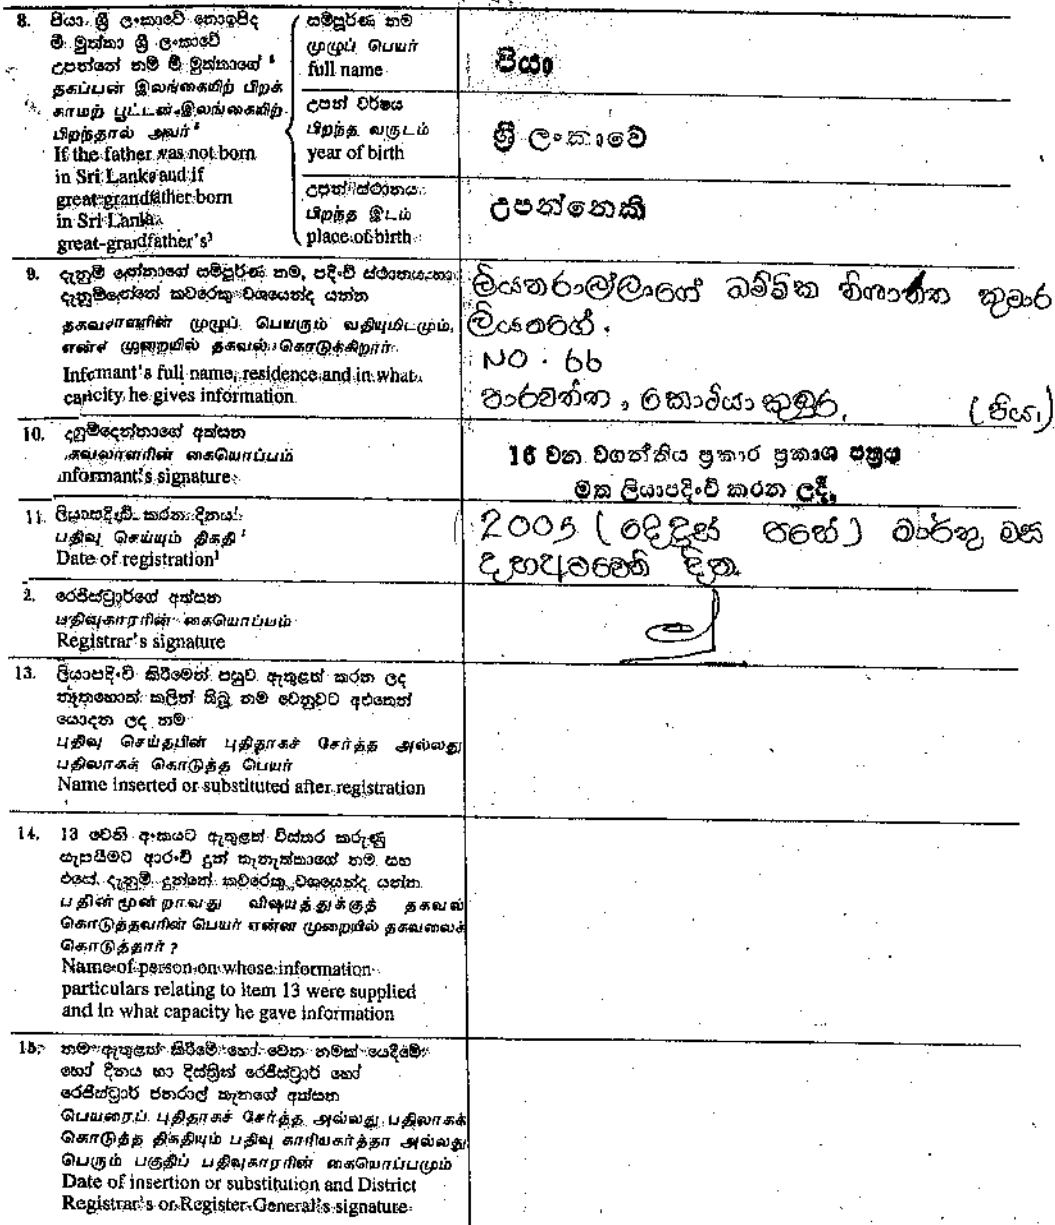 8. පියා ශ්‍රී ලංකාවේ නොඉපිද
මී මුත්තා ශ්‍රී ලංකාවේ
උපන්නේ නම් මී මුත්තාගේ
தகப்பன் இலங்கையிற் பிறக்
காமற் பூட்டன் இலங்கையிற்
பிறந்தால் அவர்
If the father was not born
in Sri Lanka and if
great grandfather born
in Sri Lanka
great-grandfather's³
සම්පූර්ණ නම
முழுப் பெயர்
full name
පියා
උපන් වර්ෂය
பிறந்த வருடம்
year of birth
ශ්‍රී ලංකාවේ
උපන් ස්ථානය
பிறந்த இடம்
place of birth
උපන්නෙකි
9. දැනුම් දෙන්නාගේ සම්පූර්ණ නම, පදිංචි ස්ථානය හා
දැනුම්දෙන්නේ කවරෙකු වශයෙන්ද යන්න
தகவலாளரின் முழுப் பெயரும் வதியுமிடமும்,
என்ன முறையில் தகவல் கொடுக்கிறார்
Informant's full name, residence and in what
capacity he gives information
ධම්මික නිශාන්ත කුමාර
ලියනගේ.
NO. 66
පාරවත්ත, (පියා)
10. දැනුම්දෙන්නාගේ අත්සන
தகவலாளரின் கையொப்பம்
informant's signature
16 වන වගන්තිය ප්‍රකාර ප්‍රකාශ පත්‍රය
මත ලියාපදිංචි කරන ලදී.
11. ලියාපදිංචි කරන දිනය
பதிவு செய்யும் திகதி
Date of registration¹
2005 (දෙදහස් පහේ) මාර්තු මස
දහඅටවෙනි දින
2. රෙජිස්ට්‍රාර්ගේ අත්සන
பதிவுகாரரின் கையொப்பம்
Registrar's signature
13. ලියාපදිංචි කිරීමෙන් පසුව ඇතුළත් කරන ලද
නැතහොත් කලින් තිබූ නම වෙනුවට අළුතෙන්
යොදන ලද නම
புதிவு செய்தபின் புதிதாகச் சேர்த்த அல்லது
பதிலாகக் கொடுத்த பெயர்
Name inserted or substituted after registration
14. 13 වෙනි අංකයට ඇතුළත් විස්තර කරුණු
සැපයීමට ආරංචි දුන් තැනැත්තාගේ නම සහ
එසේ දැනුම් දුන්නේ කවරෙකු වශයෙන්ද යන්න
பதின்மூன்றாவது விஷயத்துக்குத் தகவல்
கொடுத்தவரின் பெயர் என்ன முறையில் தகவலைக்
கொடுத்தார் ?
Name of person on whose information
particulars relating to item 13 were supplied
and in what capacity he gave information
15. නම ඇතුළත් කිරීමේ හෝ වෙන නමක් යෙදීමේ
හෝ දිනය හා දිස්ත්‍රික් රෙජිස්ට්‍රාර් හෝ
රෙජිස්ට්‍රාර් ජනරාල් තැනගේ අත්සන
பெயரைப் புதிதாகச் சேர்த்த அல்லது பதிலாகக்
கொடுத்த திகதியும் பதிவு காரியகர்த்தா அல்லது
பெரும் பகுதிப் பதிவுகாரரின் கையொப்பமும்
Date of insertion or substitution and District
Registrar's or Register-General's signature